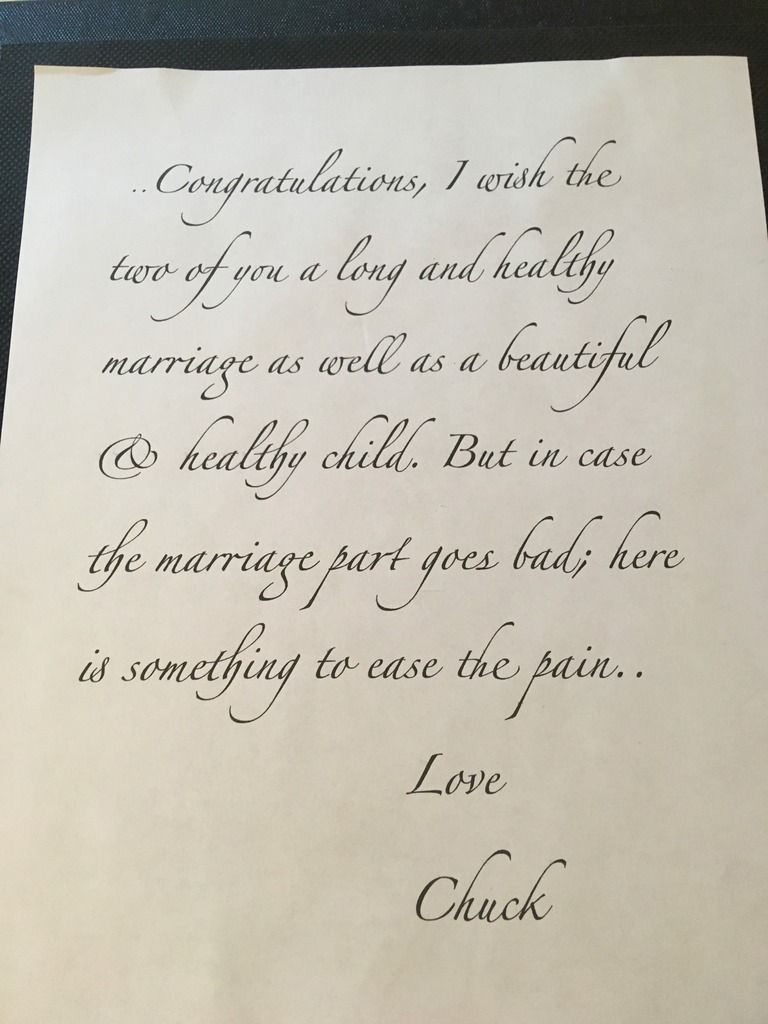 ..Congratulations, I wish the
two of you a long and healthy
marriage as well as a beautiful
& healthy child. But in case
the marriage part goes bad; here
is something to ease the pain..
Love
Chuck